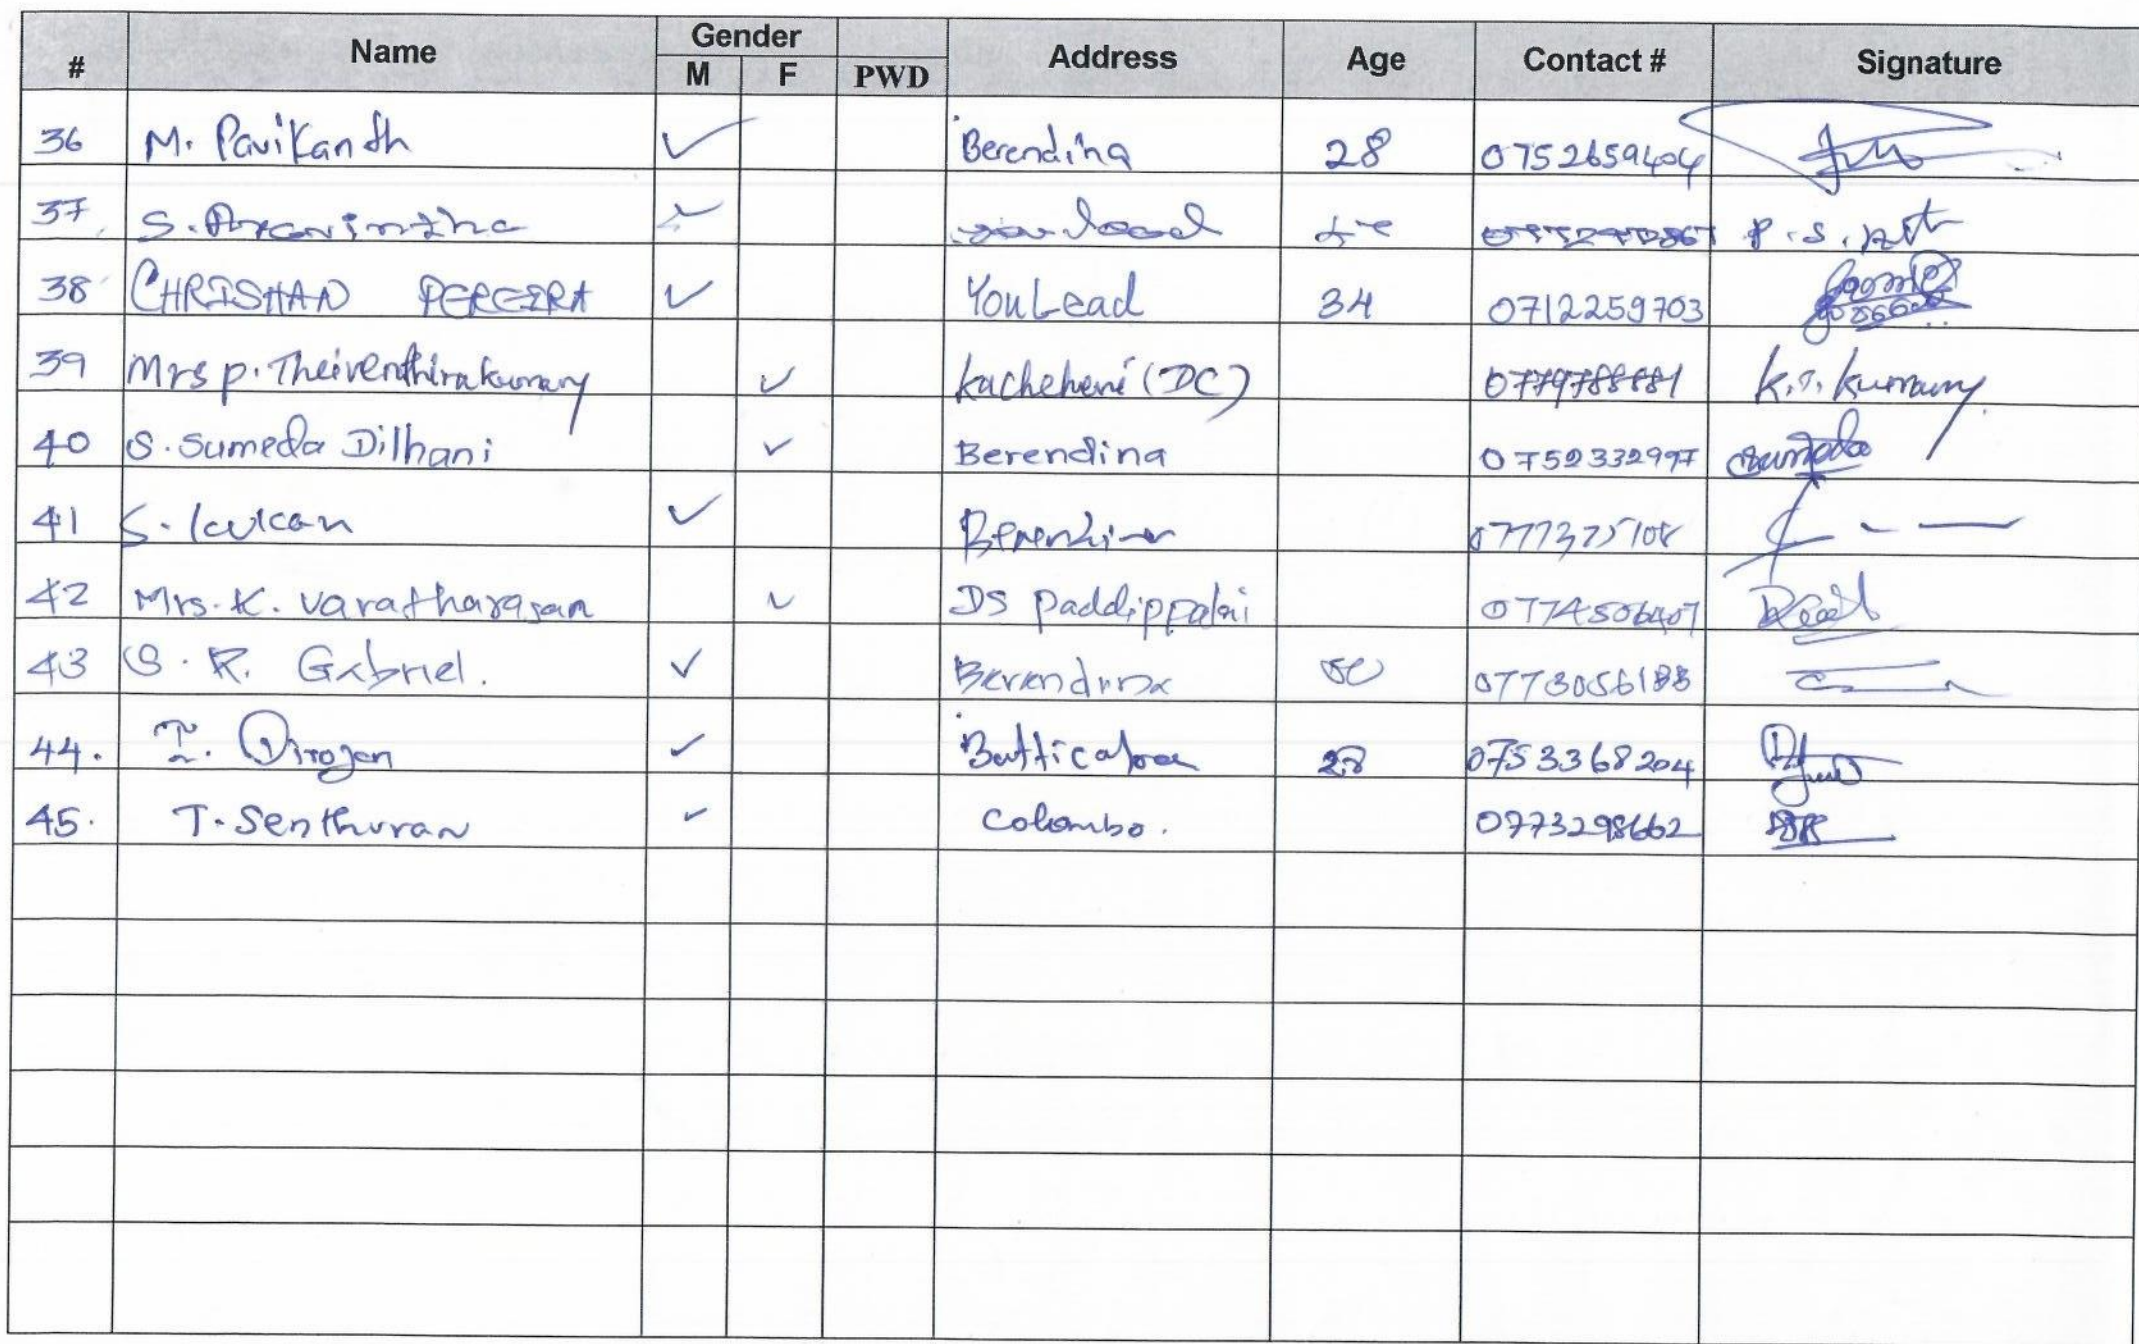 # Name Gender M F PWD Address Age Contact # Signature
36 M. Pavikanth Berendina 28 0752659404
37 S.
38 CHRISHAN PEREIRA YouLead 34 0712259703
39 Mrs p. Theiventhirakumary kachcheri (DC) 0779788881 K.T. Kumary
40 S. Sumeda Dilhani Berendina 0752332997
41 S. Berendina
42 Mrs. K. Varatharajan DS paddippalai 0774506407
43 S. R. Gabriel. Berendina 0773056188
44. T. Dirojan Batticaloa 28 0753368204
45. T. Senthuran Colombo. 0773298662